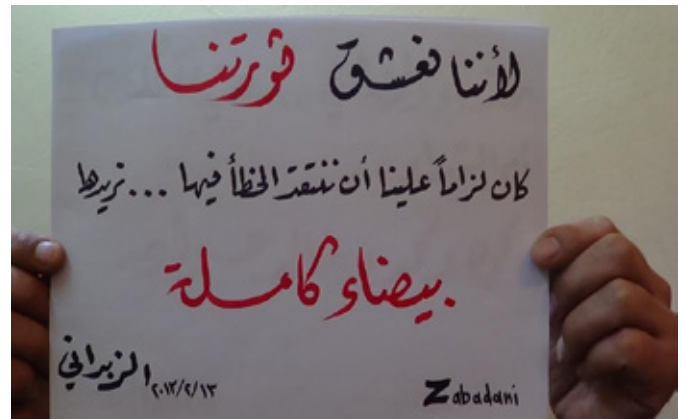 لأننا نعشق ثورتنا
كان لزاماً علينا أن ننتقد الخطأ فيها ... نريدها
بيضاء كاملة
الزبداني
٢٠١٣/٢/١٣
Zabadani